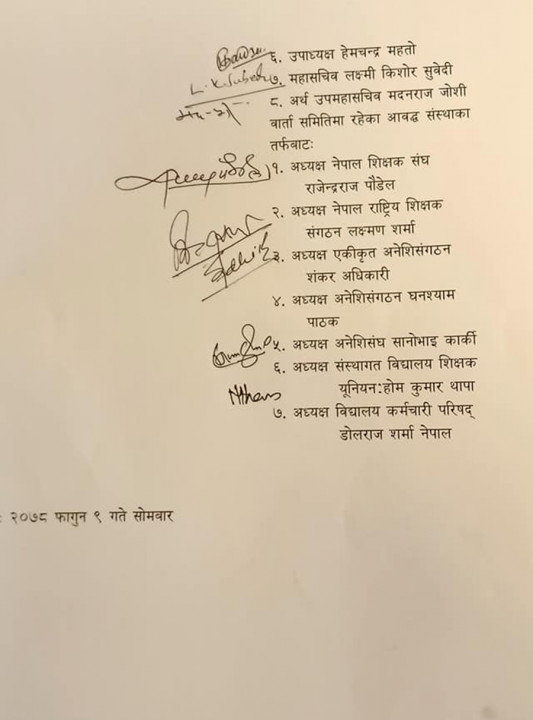 ६. उपाध्यक्ष हेमचन्द्र महतो
L.K. Subedi ७. महासचिव लक्ष्मी किशोर सुवेदी
८. अर्थ उपमहासचिव मदनराज जोशी
वार्ता समितिमा रहेका आवद्ध संस्थाका
तर्फबाटः
१. अध्यक्ष नेपाल शिक्षक संघ
राजेन्द्रराज पौडेल
२. अध्यक्ष नेपाल राष्ट्रिय शिक्षक
संगठन लक्ष्मण शर्मा
३. अध्यक्ष एकीकृत अनेशिसंगठन
शंकर अधिकारी
४. अध्यक्ष अनेशिसंगठन घनश्याम
पाठक
५. अध्यक्ष अनेशिसंघ सानोभाइ कार्की
६. अध्यक्ष संस्थागत विद्यालय शिक्षक
यूनियन:होम कुमार थापा
७. अध्यक्ष विद्यालय कर्मचारी परिषद्
डोलराज शर्मा नेपाल
: २०७८ फागुन ९ गते सोमबार